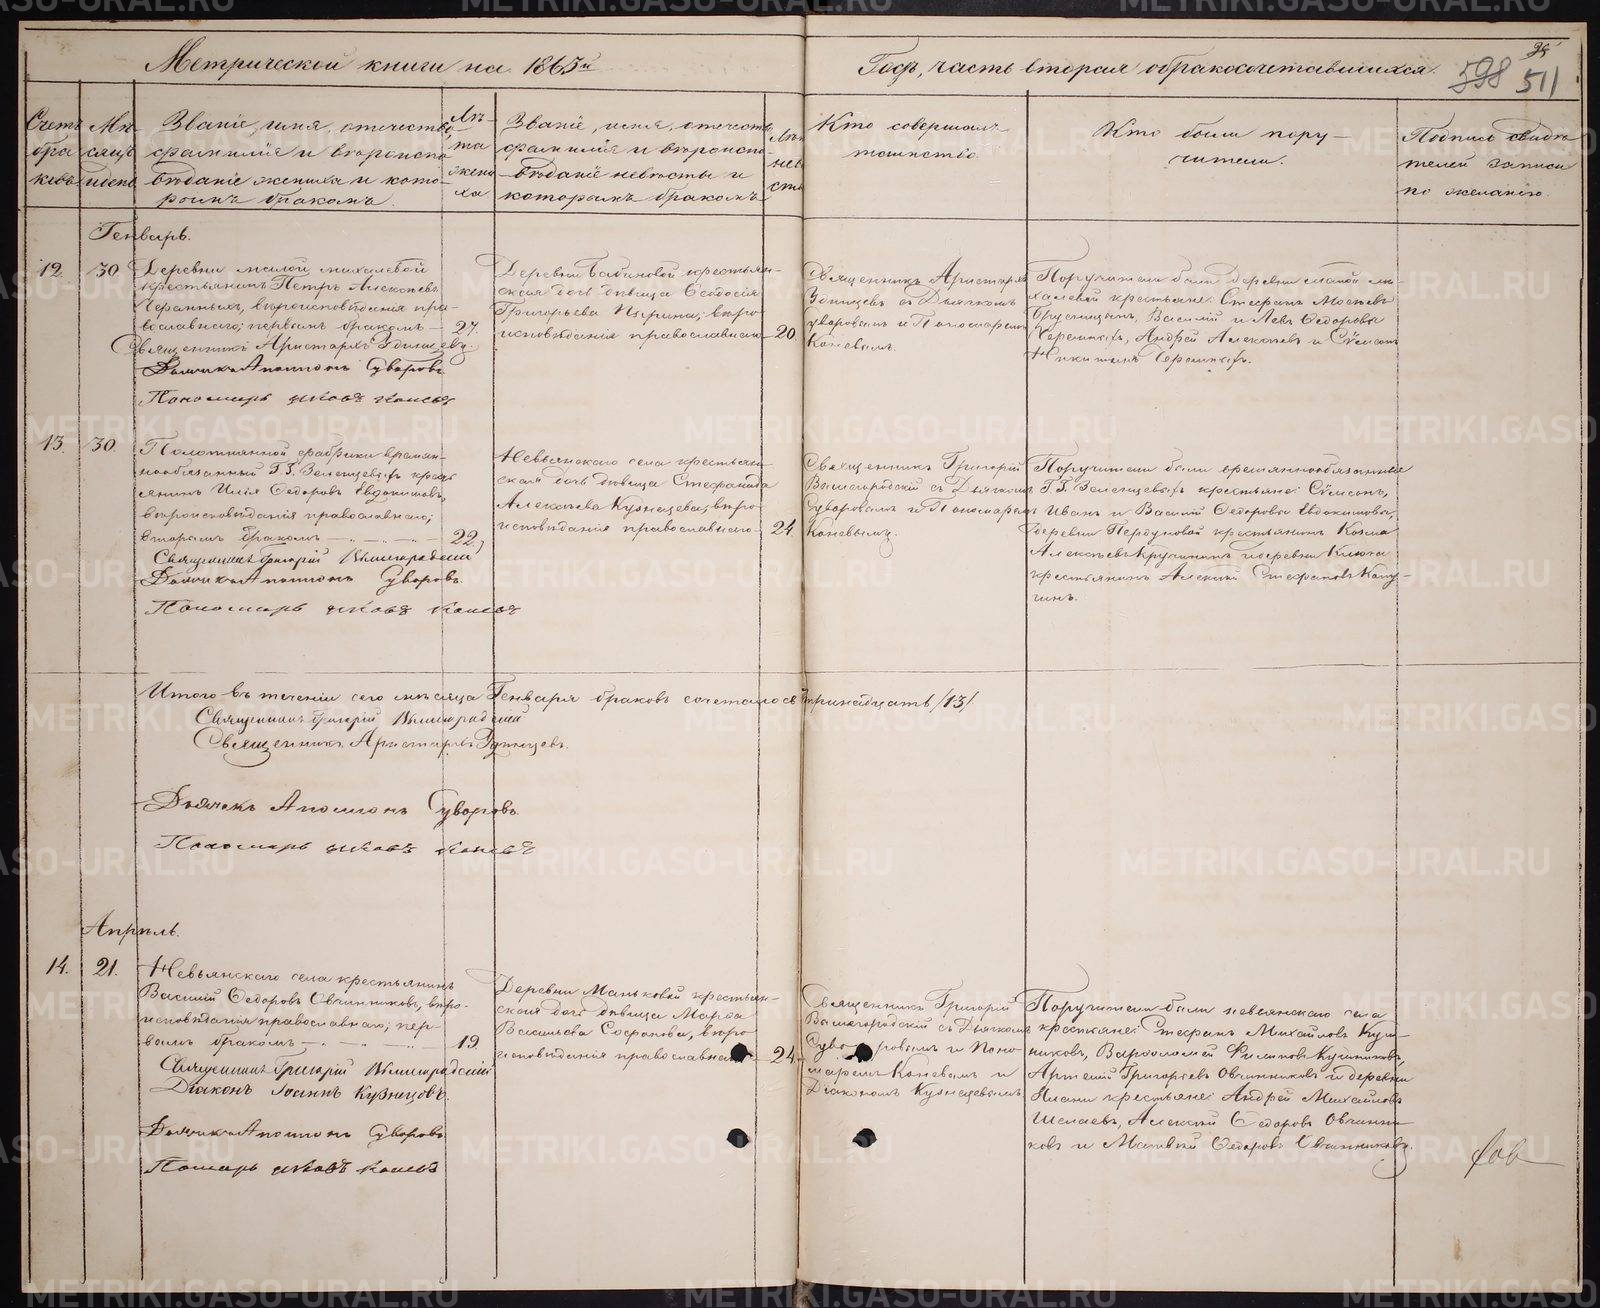 Метрической книги на 1865й
Годъ, часть вторая о бракосочетавшихся.
95
598 511
Счетъ браковъ
Мѣсяцъ и день
Званіе, имя, отчество,
фамилія и вѣроиспо-
вѣданіе жениха и кото-
рымъ бракомъ.
Лѣта жениха
Званіе, имя, отчество,
фамилія и вѣроиспо-
вѣданіе невѣсты и
которымъ бракомъ
Лѣта невѣсты
Кто совершалъ
таинство.
Кто были пору-
чители.
Подпись свидѣ-
телей записи
по желанію.
Генварь.
12. 30.
Деревни малой михалевой
крестьянинъ Петръ Алексѣевъ
Черемныхъ, вѣроисповѣданія пра-
вославнаго; первымъ бракомъ — 27.
Священникъ Аристархъ Удинцевъ.
Дьячикъ Аполлонъ Суворовъ
Пономарь Іяковъ Коневъ
Деревни Бабиновой крестьян-
ская дочь дѣвица Ѳеодосія
Григорьева; вѣро-
исповѣданія православнаго — 20.
Священникъ Аристархъ
Удинцевъ съ Дьячкомъ
Суворовымъ и Пономаремъ
Коневымъ.
Поручители были деревни малой ми-
халевой крестьяне: Стефанъ
Брусницынъ, Василій и Левъ Ѳедоровы
Черемныхъ, Андрей Алексѣевъ и Сѵмеонъ
Никитинъ Черемныхъ.
13. 30.
Полотнянной фабрики времян-
нообязанный Г.г. Зеленцовыхъ кресть-
янинъ Илія Ѳедоровъ Евдокимовъ,
вѣроисповѣданія православнаго;
вторымъ бракомъ — 22.
Священникъ Григорій Вышегородскій
Дьячикъ Аполлонъ Суворовъ.
Пономарь Іяковъ Коневъ
Невьянскаго села крестьян-
ская дочь дѣвица Стефанида
Алексѣева Кузнецова; вѣро-
исповѣданія православнаго — 24.
Священникъ Григорій
Вышегородскій съ Дьячкомъ
Суворовымъ и Пономаремъ
Коневымъ.
Поручители были времяннообязанные
Г.г. Зеленцовыхъ крестьяне: Сѵмеонъ,
Иванъ и Василій Ѳедоровы Евдокимовы,
деревни Пердуновой крестьянинъ Козма
Алексѣевъ Кручининъ и деревни Ключа
крестьянинъ Алексѣй Стефановъ
гинъ.
Итого въ теченіи сего мѣсяца Генваря браковъ сочеталось тринадцать /13/
Священникъ Григорій Вышегородскій
Священникъ Аристархъ Удинцевъ.
Дьячекъ Аполлонъ Суворовъ.
Пономарь Іяковъ Коневъ
Апрѣль.
14. 21.
Невьянскаго села крестьянинъ
Василій Ѳедоровъ Овчинниковъ, вѣро-
исповѣданія православнаго; пер-
вымъ бракомъ — 19
Священникъ Григорій Вышегородскій
Діаконъ Іоаннъ Кузнецовъ.
Дьячикъ Аполлонъ Суворовъ
Пономарь Іяковъ Коневъ
Деревни Маньковой крестьян-
ская дочь дѣвица Марѳа
Васильева Софонова, вѣро-
исповѣданія православнаго — 24.
Священникъ Григорій
Вышегородскій съ Дьячкомъ
Суворовымъ и Поно-
маремъ Коневымъ и
Діакономъ Кузнецовымъ
Поручители были невьянскаго села
крестьяне: Стефанъ Михайловъ
никовъ, Варфоломей Филиповъ
Артемій Григорьевъ Овчинниковъ и деревни
крестьяне: Андрей Михайловъ
Шелаевъ, Алексѣй Ѳедоровъ Овчинни-
ковъ и Матвѣй Ѳедоровъ Овчинниковъ.
METRIKI.GASO-URAL.RU